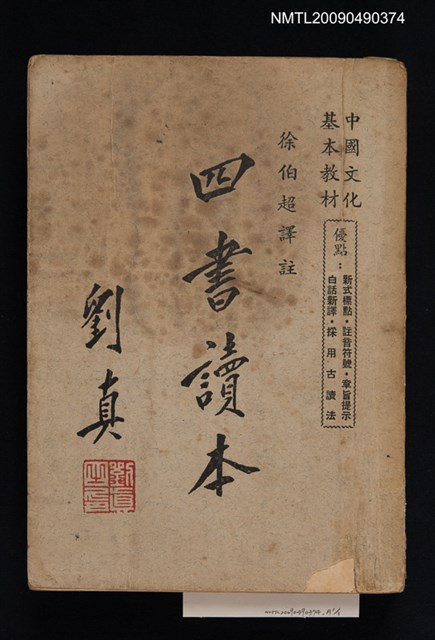 NMTL20090490374
中國文化
基本教材
優點：
新式標點・註音符號・章旨提示
白話新譯・採用古讀法
徐伯超譯註
四書讀本
劉真